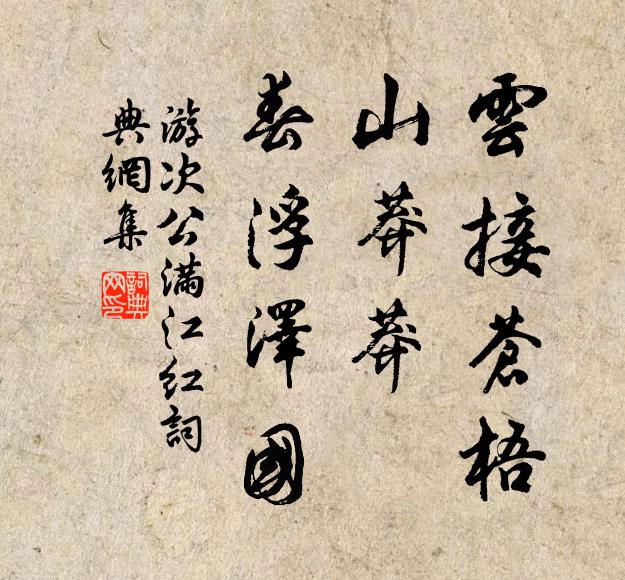 雲接蒼梧
山莽莽
春浮澤國
游次公滿江紅詞
典網集
詞典網印